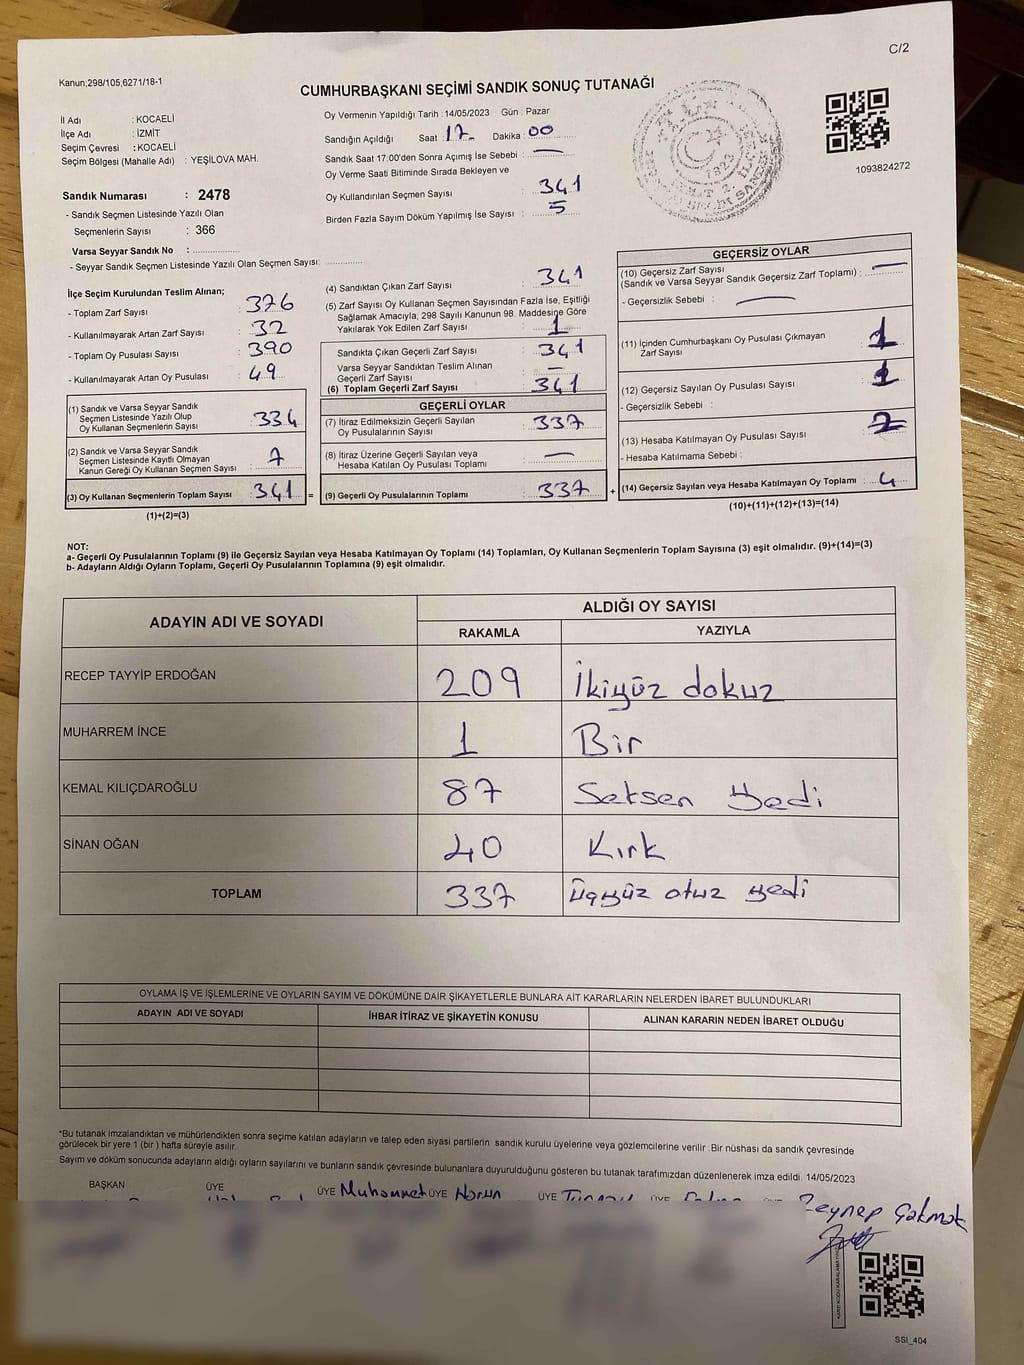 C/2
Kanun;298/105;6271/18-1
CUMHURBAŞKANI SEÇİMİ SANDIK SONUÇ TUTANAĞI
İl Adı : KOCAELİ
İlçe Adı : İZMİT
Seçim Çevresi : KOCAELİ
Seçim Bölgesi (Mahalle Adı) : YEŞİLOVA MAH.
Sandık Numarası : 2478
- Sandık Seçmen Listesinde Yazılı Olan
Seçmenlerin Sayısı : 366
Varsa Seyyar Sandık No : ..............
- Seyyar Sandık Seçmen Listesinde Yazılı Olan Seçmen Sayısı: ..............
Oy Vermenin Yapıldığı Tarih : 14/05/2023 Gün : Pazar
Sandığın Açıldığı Saat 17 Dakika : 00
Sandık Saat 17:00'den Sonra Açımış İse Sebebi : —
Oy Verme Saati Bitiminde Sırada Bekleyen ve
Oy Kullandırılan Seçmen Sayısı : 341
Birden Fazla Sayım Döküm Yapılmış İse Sayısı : 5
1923
1093824272
İlçe Seçim Kurulundan Teslim Alınan;
- Toplam Zarf Sayısı : 376
- Kullanılmayarak Artan Zarf Sayısı : 32
- Toplam Oy Pusulası Sayısı : 390
- Kullanılmayarak Artan Oy Pusulası : 49
(1) Sandık ve Varsa Seyyar Sandık
Seçmen Listesinde Yazılı Olup
Oy Kullanan Seçmenlerin Sayısı : 334
(2) Sandık ve Varsa Seyyar Sandık
Seçmen Listesinde Kayıtlı Olmayan
Kanun Gereği Oy Kullanan Seçmen Sayısı : 7
(3) Oy Kullanan Seçmenlerin Toplam Sayısı : 341 =
(1)+(2)=(3)
(4) Sandıktan Çıkan Zarf Sayısı : 341
(5) Zarf Sayısı Oy Kullanan Seçmen Sayısından Fazla İse, Eşitliği
Sağlamak Amacıyla; 298 Sayılı Kanunun 98. Maddesine Göre
Yakılarak Yok Edilen Zarf Sayısı : 1
Sandıkta Çıkan Geçerli Zarf Sayısı : 341
Varsa Seyyar Sandıktan Teslim Alınan
Geçerli Zarf Sayısı : —
(6) Toplam Geçerli Zarf Sayısı : 341
GEÇERLİ OYLAR
(7) İtiraz Edilmeksizin Geçerli Sayılan
Oy Pusulalarının Sayısı : 337
(8) İtiraz Üzerine Geçerli Sayılan veya
Hesaba Katılan Oy Pusulası Toplamı : —
(9) Geçerli Oy Pusulalarının Toplamı : 337 +
GEÇERSİZ OYLAR
(10) Geçersiz Zarf Sayısı
(Sandık ve Varsa Seyyar Sandık Geçersiz Zarf Toplamı) : —
- Geçersizlik Sebebi : —
(11) İçinden Cumhurbaşkanı Oy Pusulası Çıkmayan
Zarf Sayısı : 1
(12) Geçersiz Sayılan Oy Pusulası Sayısı : 1
- Geçersizlik Sebebi :
(13) Hesaba Katılmayan Oy Pusulası Sayısı : 2
- Hesaba Katılmama Sebebi :
(14) Geçersiz Sayılan veya Hesaba Katılmayan Oy Toplamı : 4
(10)+(11)+(12)+(13)=(14)
NOT:
a- Geçerli Oy Pusulalarının Toplamı (9) ile Geçersiz Sayılan veya Hesaba Katılmayan Oy Toplamı (14) Toplamları, Oy Kullanan Seçmenlerin Toplam Sayısına (3) eşit olmalıdır. (9)+(14)=(3)
b- Adayların Aldığı Oyların Toplamı, Geçerli Oy Pusulalarının Toplamına (9) eşit olmalıdır.
ADAYIN ADI VE SOYADI ALDIĞI OY SAYISI
RAKAMLA YAZIYLA
RECEP TAYYİP ERDOĞAN 209 İkiyüz dokuz
MUHARREM İNCE 1 Bir
KEMAL KILIÇDAROĞLU 87 Seksen Yedi
SİNAN OĞAN 40 Kırk
TOPLAM 337 üçyüz otuz yedi
OYLAMA İŞ VE İŞLEMLERİNE VE OYLARIN SAYIM VE DÖKÜMÜNE DAİR ŞİKAYETLERLE BUNLARA AİT KARARLARIN NELERDEN İBARET BULUNDUKLARI
ADAYIN ADI VE SOYADI İHBAR İTİRAZ VE ŞİKAYETİN KONUSU ALINAN KARARIN NEDEN İBARET OLDUĞU
*Bu tutanak imzalandıktan ve mühürlendikten sonra seçime katılan adayların ve talep eden siyasi partilerin sandık kurulu üyelerine veya gözlemcilerine verilir. Bir nüshası da sandık çevresinde
görülecek bir yere 1 (bir) hafta süreyle asılır.
Sayım ve döküm sonucunda adayların aldığı oyların sayılarını ve bunların sandık çevresinde bulunanlara duyurulduğunu gösteren bu tutanak tarafımızdan düzenlenerek imza edildi. 14/05/2023
BAŞKAN ÜYE ÜYE Muhammet ÜYE Harun ÜYE ÜYE
Zeynep Çakmak
SSI_404